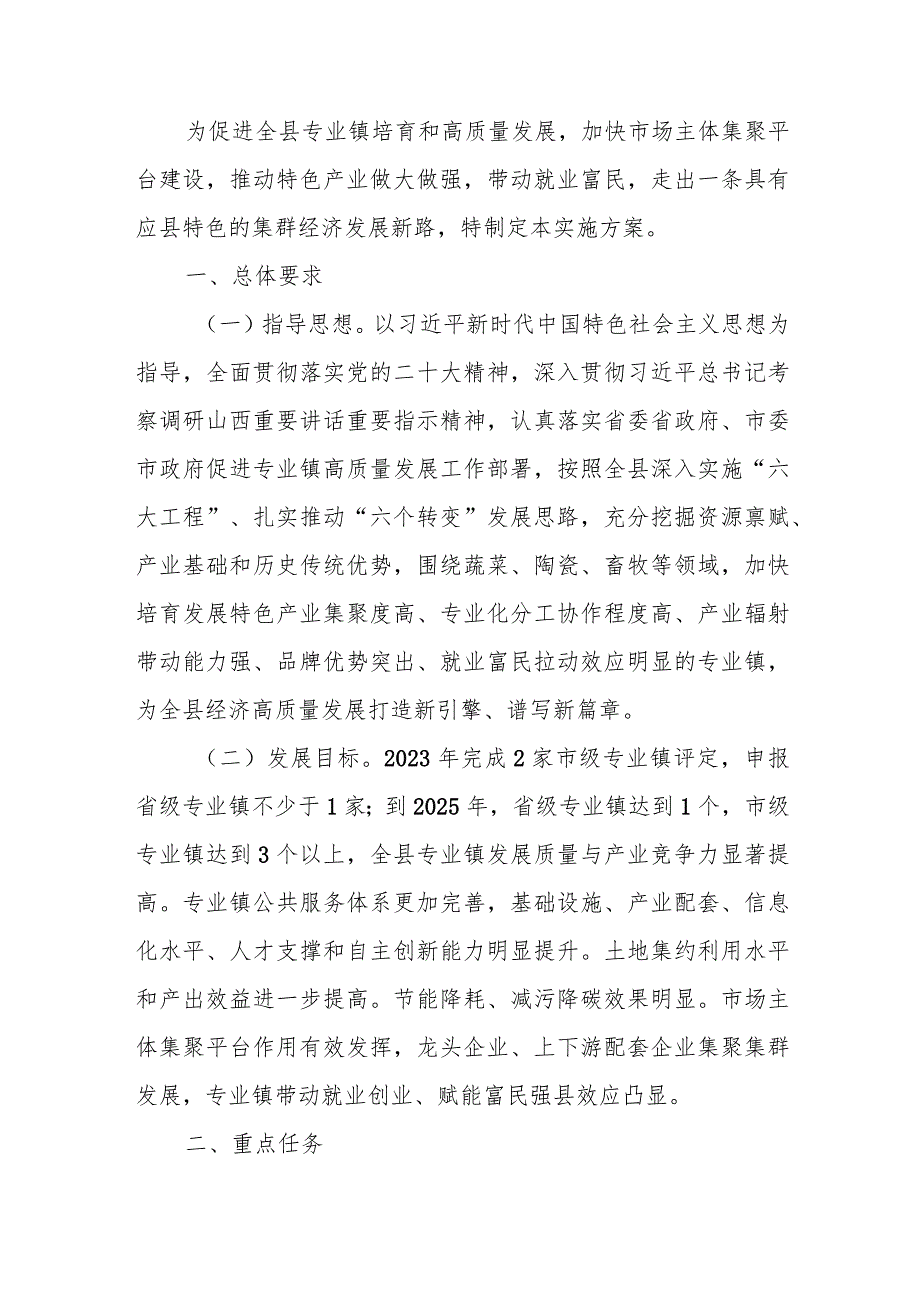 为促进全县专业镇培育和高质量发展，加快市场主体集聚平
台建设，推动特色产业做大做强，带动就业富民，走出一条具有
应县特色的集群经济发展新路，特制定本实施方案。
一、总体要求
（一）指导思想。以习近平新时代中国特色社会主义思想为
指导，全面贯彻落实党的二十大精神，深入贯彻习近平总书记考
察调研山西重要讲话重要指示精神，认真落实省委省政府、市委
市政府促进专业镇高质量发展工作部署，按照全县深入实施“六
大工程”、扎实推动“六个转变”发展思路，充分挖掘资源禀赋、
产业基础和历史传统优势，围绕蔬菜、陶瓷、畜牧等领域，加快
培育发展特色产业集聚度高、专业化分工协作程度高、产业辐射
带动能力强、品牌优势突出、就业富民拉动效应明显的专业镇，
为全县经济高质量发展打造新引擎、谱写新篇章。
（二）发展目标。2023 年完成 2 家市级专业镇评定，申报
省级专业镇不少于 1 家；到 2025 年，省级专业镇达到 1 个，市级
专业镇达到 3 个以上，全县专业镇发展质量与产业竞争力显著提
高。专业镇公共服务体系更加完善，基础设施、产业配套、信息
化水平、人才支撑和自主创新能力明显提升。土地集约利用水平
和产出效益进一步提高。节能降耗、减污降碳效果明显。市场主
体集聚平台作用有效发挥，龙头企业、上下游配套企业集聚集群
发展，专业镇带动就业创业、赋能富民强县效应凸显。
二、重点任务